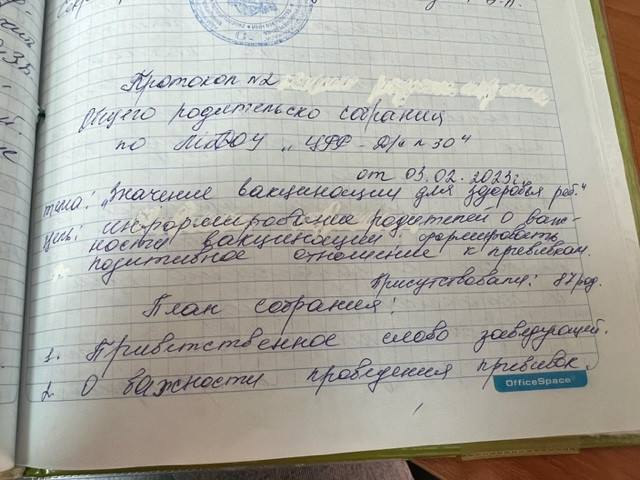 Протокол №2
Общего родительско собрания
по МБДОУ „ЦРР - Д/с № 30"
от 03.02.2023г.
тема: „Значение вакцинации для здоровья реб."
Цель: информирование родителей о важ-
ности вакцинации формировать
позитивное отношение к прививкам.
Присутствовали: 87 род.
План собрания:
1. Приветственное слово заведующей.
2. О важности проведения прививок.
OfficeSpace